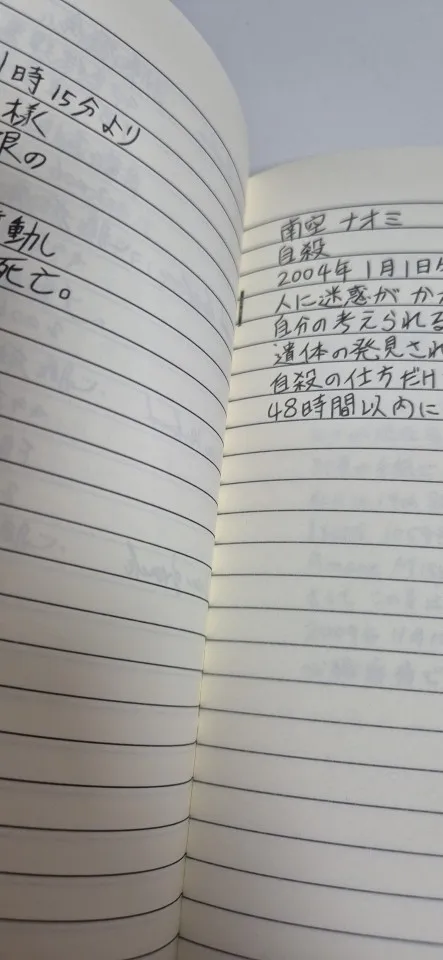 1時15分より
様く
限の
動し
死亡。
南空 ナオミ
自殺
2004年1月1日午
人に迷惑が かか
自分の考えられる
遺体の発見され
自殺の仕方だけ
48時間以内に